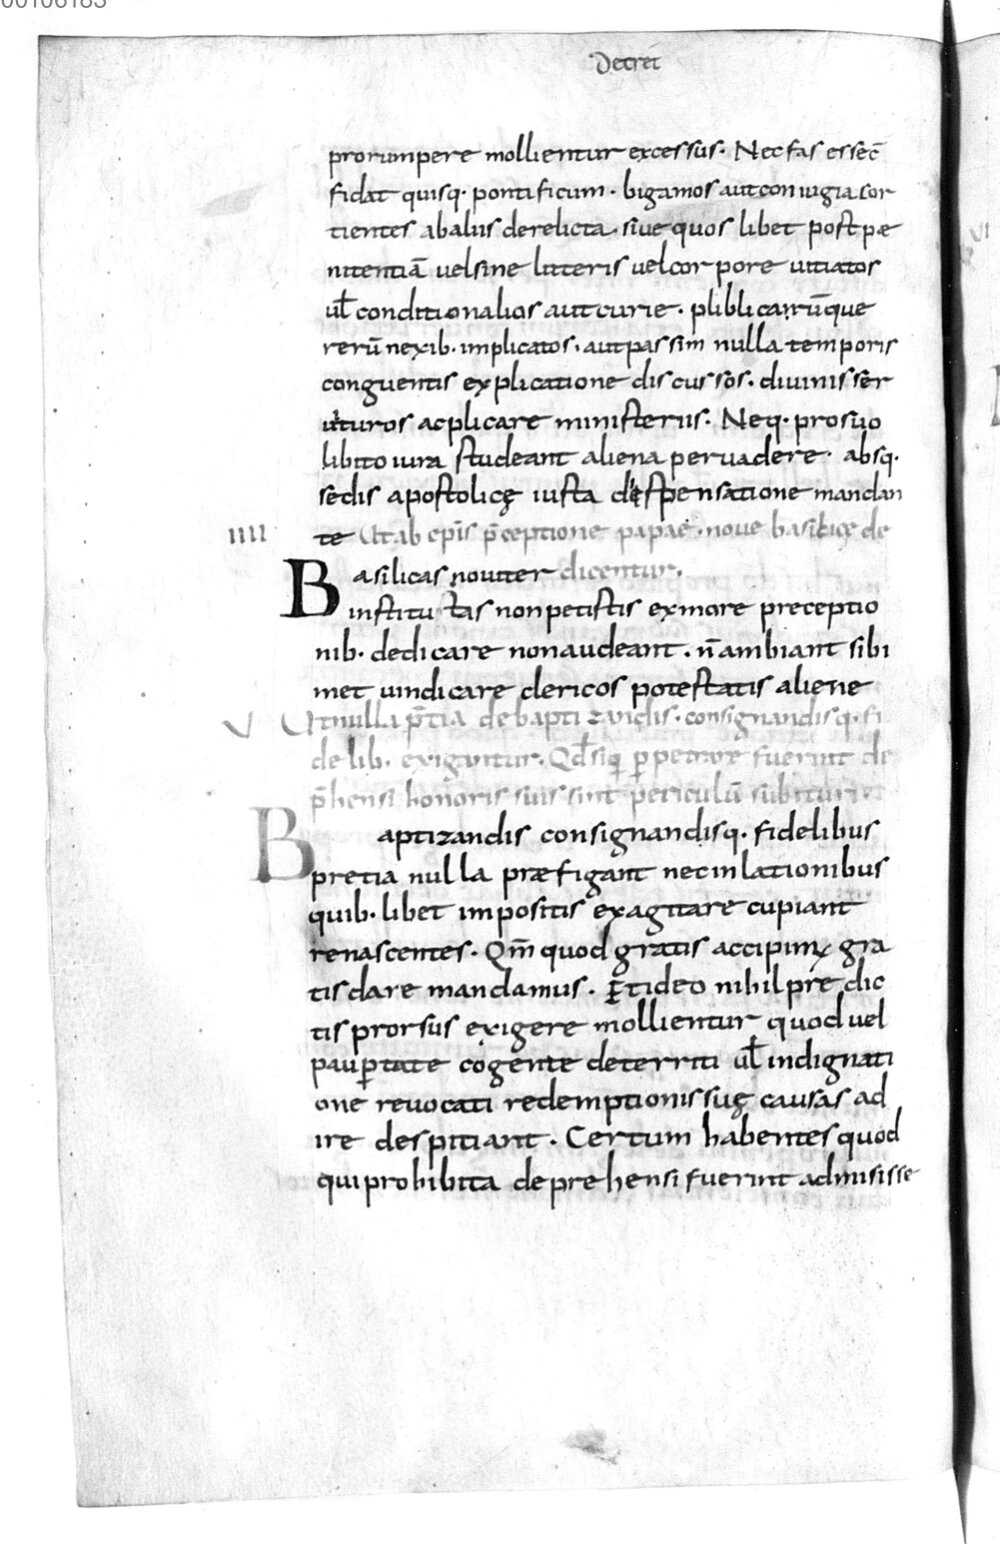 00106183
Decret
prorumpere mollientur excessus. Nec fas esse c̄
fidat quisq· pontificum · bigamos aut coniugia sor
tientes ab aliis derelicta, sive quos libet post pæ
nitentiā vel sine litteris vel corpore vitiatos
ut̄ conditionalios aut curie · pliblicarūque
rerū nexib· implicatos, aut passim nulla temporis
congventis explicatione discussos. divinis ser
vituros acplicare ministeriis. Neq· pro suo
libito iura studeant aliena pervadere · absq·
sedis apostolicę iusta dispensatione mandan
te Ut ab ep̄is p̄ceptione papae · nove basilicę de
IIII
Basilicas noviter dicentur.
institutas non petistis ex more preceptio
nib· dedicare non audeant · n̄ ambiant sibi
met vindicare clericos potestatis aliene
V Ut nulla p̄tia de baptizandis · consignandisq· fi
delib· exigantur. Qd̄ siq̣ ꝑpetrare fuerint de
p̄hensi honoris sui sint periculū subituri.
Baptizandis consignandisq· fidelibus
pretia nulla præfigant nec inlationibus
quib· libet impositis exagitare cupiant
renascentes. Qm̄ quod gratis accipimꝰ gra
tis dare mandamus. Et ideo nihil pre dic
tis prorsus exigere mollientur quod vel
pauꝑtate cogente deterriti ut̄ indignati
one revocati redemptionis suę causas ad
ire despitiant. Certum habentes quod
qui prohibita deprehensi fuerint admisisse
VI